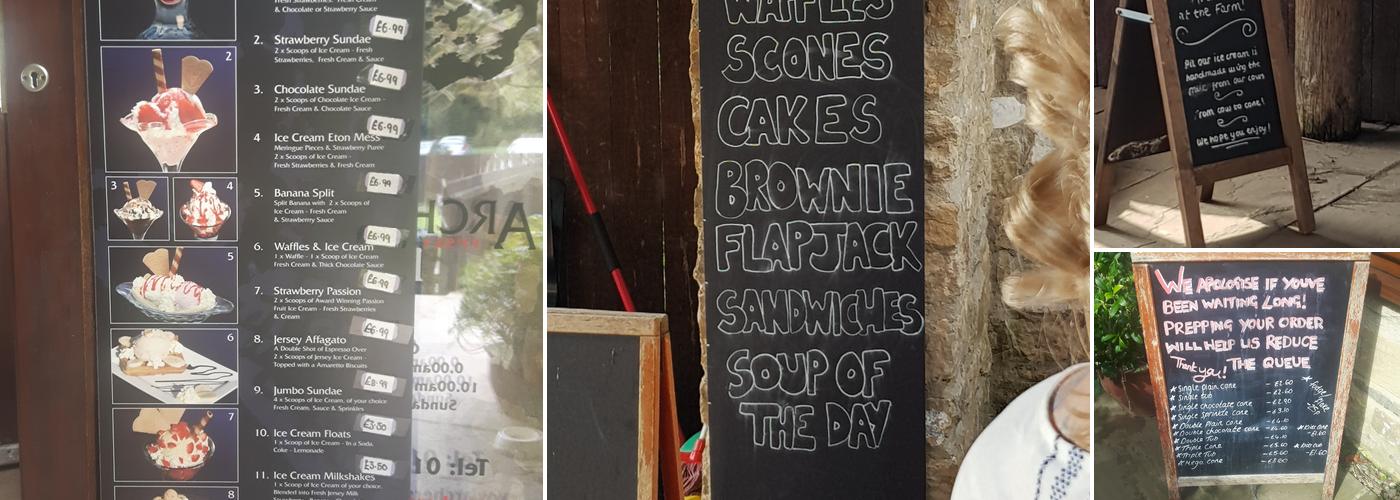 Fresh Strawberries, Fresh Cream
& Chocolate or Strawberry Sauce
£6.99
2
2. Strawberry Sundae
2 x Scoops of Ice Cream - Fresh
Strawberries, Fresh Cream & Sauce
£6.99
3. Chocolate Sundae
2 x Scoops of Chocolate Ice Cream -
Fresh Cream & Chocolate Sauce
£6.99
4 Ice Cream Eton Mess
Meringue Pieces & Strawberry Puree
2 x Scoops of Ice Cream -
Fresh Strawberries & Fresh Cream
£6.99
3
4
5. Banana Split
Split Banana with 2 x Scoops of
Ice Cream - Fresh Cream
& Strawberry Sauce
£6.99
5
6. Waffles & Ice Cream
1 x Waffle - 1 x Scoop of Ice Cream
Fresh Cream & Thick Chocolate Sauce
£6.99
7. Strawberry Passion
2 x Scoops of Award Winning Passion
Fruit Ice Cream - Fresh Strawberries
& Cream
£6.99
6
8. Jersey Affagato
A Double Shot of Espresso Over
2 x Scoops of Jersey Ice Cream -
Topped with a Amaretto Biscuits
9. Jumbo Sundae
4 x Scoops of Ice Cream, of your choice
Fresh Cream, Sauce & Sprinkles
£3.50
7
10. Ice Cream Floats
1 x Scoop of Ice Cream - In a Soda,
Coke - Lemonade
£3.50
11. Ice Cream Milkshakes
1 x Scoop of Ice Cream of your choice,
Blended into Fresh Jersey Milk
8
ARCH
10.00am
Sunda
Tel: 01
WAFFLES
SCONES
CAKES
BROWNIE
FLAPJACK
SANDWICHES
SOUP OF
THE DAY
at the Farm!
All our ice cream is
handmade using the
milk from our cows
From cow to cone!
We hope you enjoy!
WE APOLOGISE IF YOU'VE
BEEN WAITING LONG!
PREPPING YOUR ORDER
WILL HELP US REDUCE
Thank you! THE QUEUE
* Single plain cone - £2.60
* Single tub - £2.60
* Single chocolate cone - £2.90
* Single Sprinkle cone - £3.10
* Double Plain cone - £4.10
* Double chocolate cone - £4.60
* Double Tub - £4.10
* Triple Cone - £5.60
* Triple Tub - £5.60
* Mega cone
* Kids cone
- £1.60
* Kids tub
- £1.60